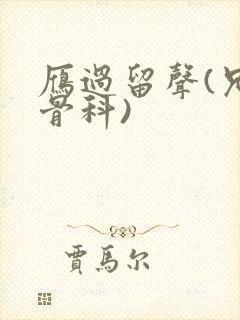 雁過留聲(兄
骨科)
賈馬尔